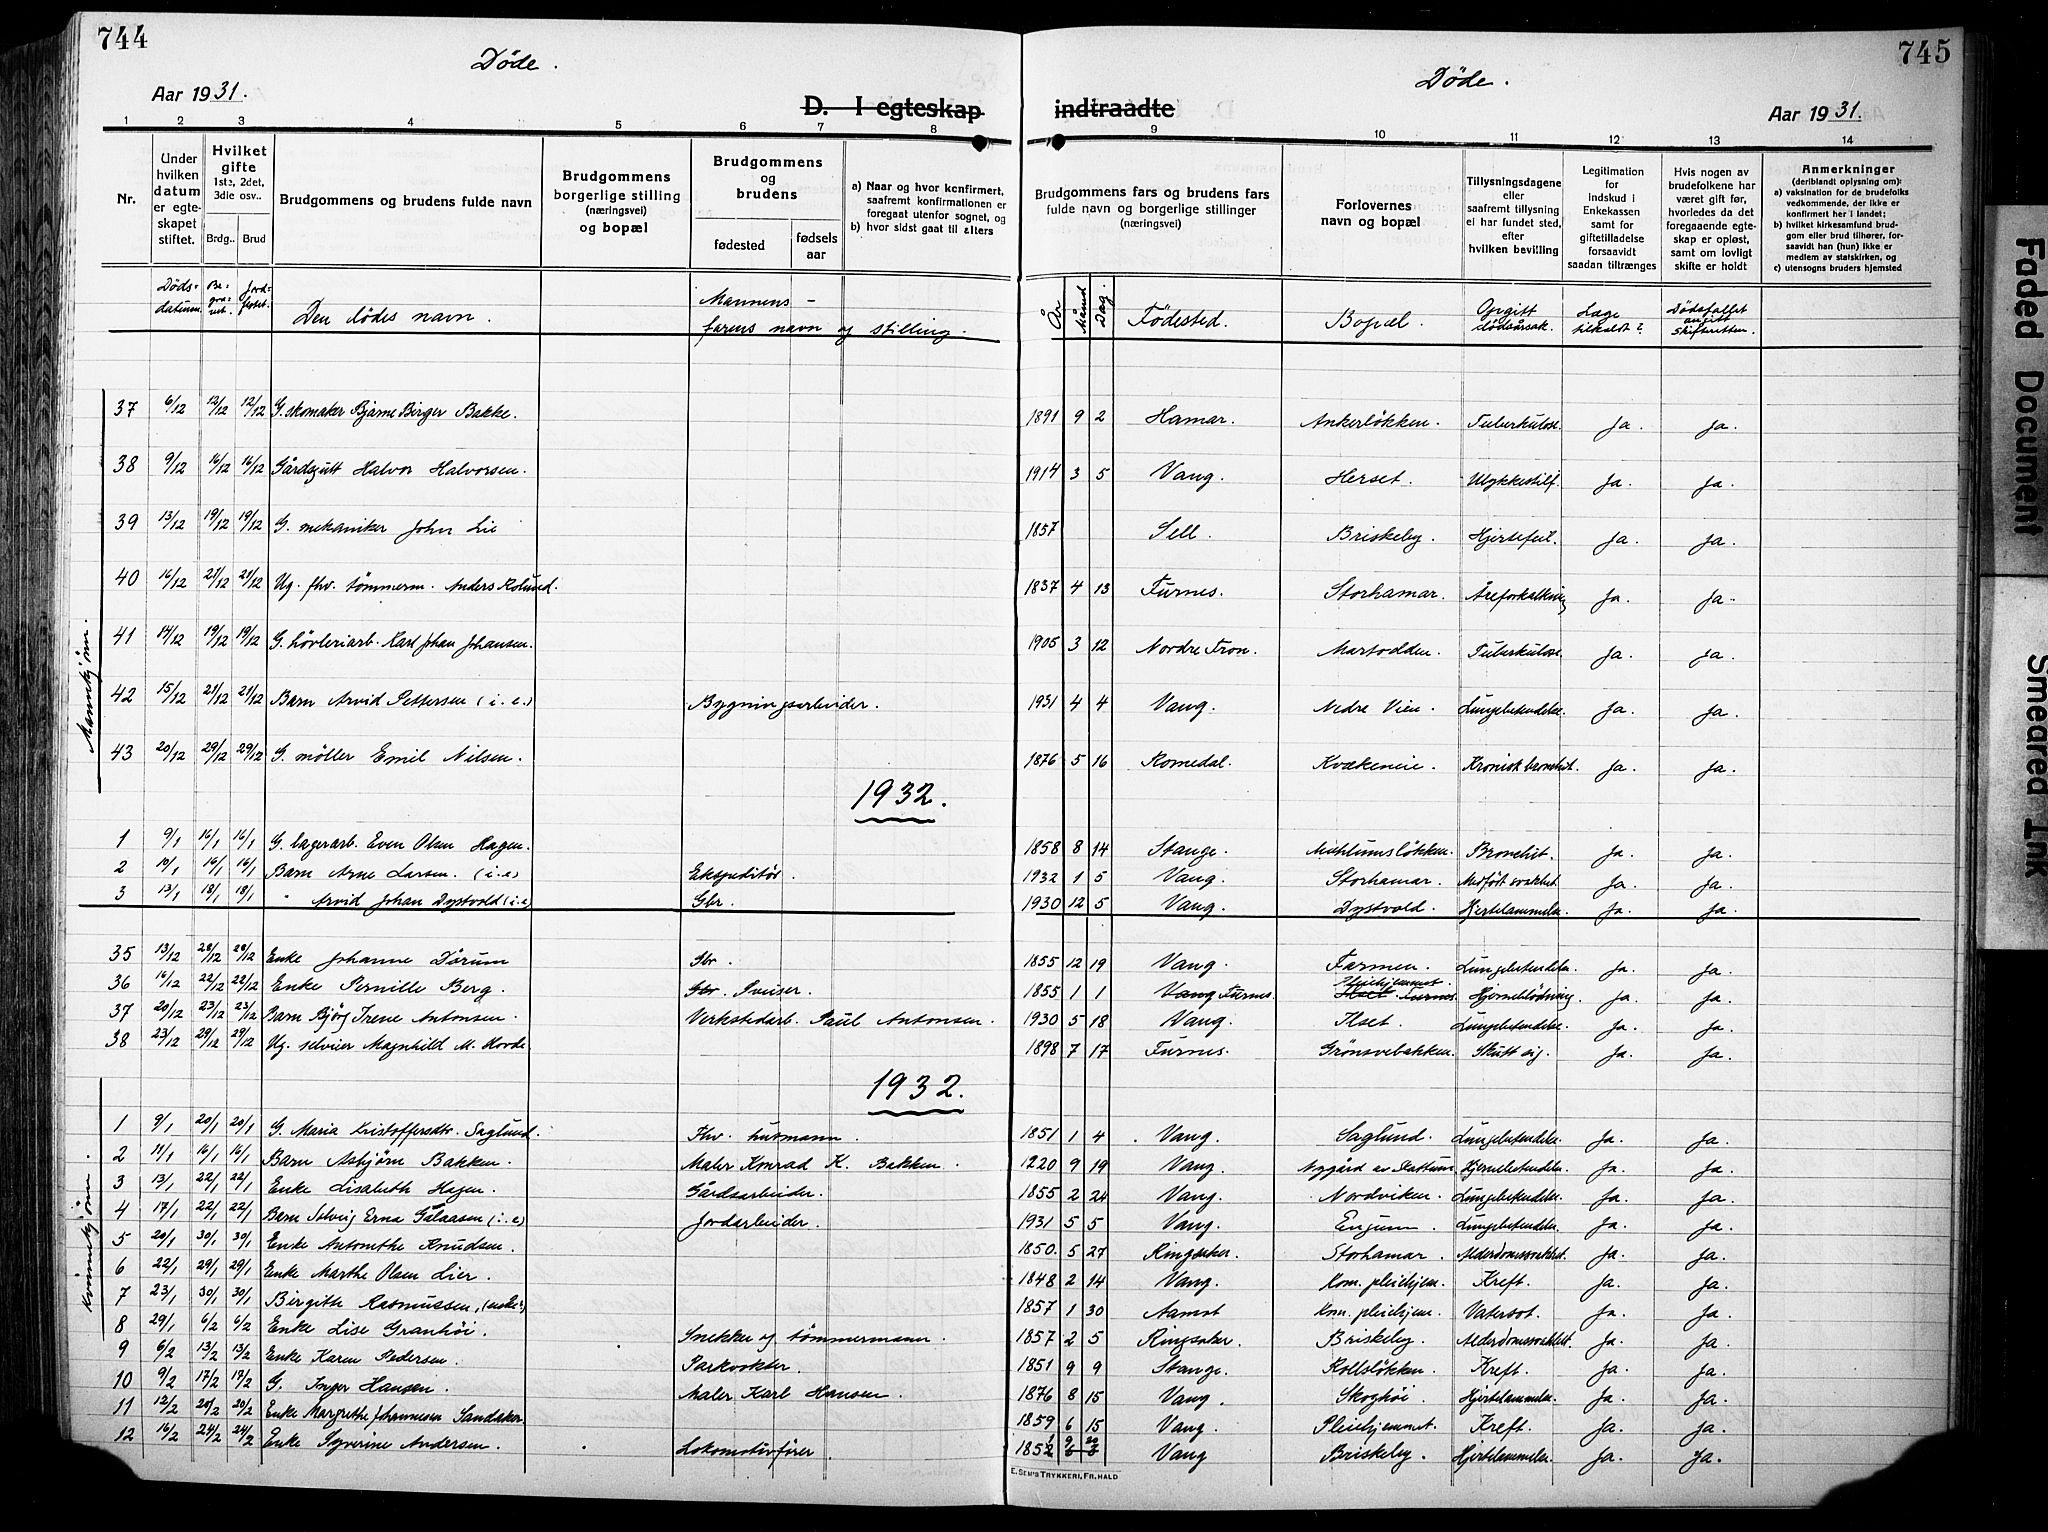 744
745
Døde.
Døde.
Aar 1931.
Aar 1931.
D. I egteskap indtraadte
1 2 3 4 5 6 7 8 9 10 11 12 13 14
Nr.
Under hvilken datum er egteskapet stiftet.
Hvilket gifte 1ste, 2det, 3die osv..
Brdg.. Brud
Brudgommens og brudens fulde navn
Brudgommens borgerlige stilling (næringsvei) og bopæl
Brudgommens og brudens
fødested fødselsaar
a) Naar og hvor konfirmert, saafremt konfirmationen er foregaat utenfor sognet, og
b) hvor sidst gaat til alters
Brudgommens fars og brudens fars fulde navn og borgerlige stillinger (næringsvei)
Forlovernes navn og bopæl
Tillysningsdagene eller saafremt tillysning ei har fundet sted, efter hvilken bevilling
Legitimation for Indskud i Enkekassen samt for giftetilladelse forsaavidt saadan tiltrænges
Hvis nogen av brudefolkene har været gift før, hvorledes da det foregaaende egteskap er opløst, samt om lovligt skifte er holdt
Anmerkninger (deriblandt oplysning om):
a) vaksination for de brudefolks vedkommende, der ikke er konfirmert her i landet;
b) hvilket kirkesamfund brudgom eller brud tilhører, forsaavidt han (hun) ikke er medlem av statskirken, og
c) utensogns bruders hjemsted
Dødsdatum. Begravet. Jordfestet. Den dødes navn. Mannens - farens navn og stilling. År Måned Dag. Fødested. Bopæl. Opgitt dødsårsak. Læge tilkaldt? Dødsfallet angitt skifteretten.
Mannkjøn.
37 6/12 12/12 12/12 G. skomaker Bjarne Birger Bakke. 1891 9 2 Hamar. Ankerløkken. Tuberkulose Ja. Ja.
38 9/12 16/12 16/12 Gårdsgutt Halvor Halvorsen. 1914 3 5 Vang. Herset. Ulykkestilf. Ja. Ja.
39 13/12 19/12 19/12 G. mekaniker John Lie 1857 Sell. Briskeby. Hjertefeil. Ja. Ja.
40 16/12 21/12 21/12 Ug. fhv. tømmerm. Anders Kolund. 1837 4 13 Furnes. Storhamar. Åreforkalkning Ja. Ja.
41 14/12 19/12 19/12 G. høvleriarb. Karl Johan Johansen. 1905 3 12 Nordre Fron. Martodden. Tuberkulose Ja. Ja.
42 15/12 21/12 21/12 Barn Arvid Pettersen (i. e.) Bygningsarbeider. 1931 4 4 Vang. Nedre Vien. Lungebetendelse. Ja. Ja.
43 20/12 29/12 29/12 G. møller Emil Nilsen. 1876 5 16 Romedal. Kvækeneie. Kronisk bronchit. Ja. Ja.
1932.
1 9/1 16/1 16/1 G. lagerarb. Even Olsen Hagen. 1858 8 14 Stange. Bronchit. Ja. Ja.
2 10/1 16/1 16/1 Barn Arne Larsen. (i.e) Ekspeditør. 1932 1 5 Vang. Storhamar. Medfødt svakhet. Ja. Ja.
3 13/1 18/1 18/1 " Arvid Johan Dystvold (i.e) Gbr. 1930 12 5 Vang. Dystvold. Hjertelammelse. Ja. Ja.
35 13/12 28/12 28/12 Enke Johanne Dørum Gbr. 1855 12 19 Vang. Farmen. Lungebetendelse. Ja. Ja.
36 16/12 22/12 22/12 Enke Pernille Berg. Gbr. Sveiser. 1855 1 1 Vang Furnes. Pleiehjemmet. Ilset Furnes. Hjerneblødning Ja. Ja.
37 20/12 23/12 23/12 Barn Bjørg Irene Antonsen. Verkstedarb. Paul Antonsen. 1930 5 18 Vang. Ilset. Lungebetendelse. Ja. Ja.
38 23/12 29/12 29/12 Ug. Magnhild M. Horde 1898 7 17 Furnes. Grønsvebakken. Skutt sig. Ja. Ja.
1932.
Kvinnekjønn.
1 9/1 20/1 20/1 G. Maria Kristoffersdtr. Saglund. Fhv. husmann. 1851 1 4 Vang. Saglund. Lungebetendelse. Ja. Ja.
2 11/1 16/1 16/1 Barn Asbjørn Bakken. Maler Konrad K. Bakken. 1220 9 19 Vang. Nygård av Skattum Hjernebetendelse. Ja. Ja.
3 13/1 22/1 22/1 Enke Lisabeth Hagen. Gårdsarbeider. 1855 2 24 Vang. Nordviken. Lungebetendelse. Ja. Ja.
4 17/1 22/1 22/1 Barn Solveig Erna Gålaasen (i.e) Jordarbeider. 1931 5 5 Vang. Enjum. Lungebetendelse. Ja. Ja.
5 20/1 30/1 30/1 Enke Antonethe Knudsen. 1850. 5 27 Ringsaker. Storhamar. Alderdomssvakhet. Ja. Ja.
6 22/1 29/1 29/1 Enke Marthe Olsen Lier. 1848 2 14 Vang. Kom. pleiehjem. Kreft. Ja. Ja.
7 23/1 30/1 30/1 Birgitte Rasmussen, (enke?) 1857 1 30 Aamot Kom. pleiehjem. Vatersot. Ja. Ja.
8 29/1 6/2 6/2 Enke Lise Granhøi. Snekker og tømmermann. 1857 2 5 Ringsaker. Briskeby. Alderdomssvakhet. Ja. Ja.
9 6/2 13/2 13/2 Enke Karen Pedersen. Parkvokter. 1851 9 9 Stange. Kollsløkken. Kreft. Ja. Ja.
10 9/2 17/2 17/2 G. Inger Hansen. Maler Karl Hansen. 1876 8 15 Vang. Skoghøi Hjertelammelse. Ja. Ja.
11 12/2 20/2 20/2 Enke Margrethe Johannesen Sandaker. 1859 6 15 Vang. Pleiehjemmet. Kreft. Ja. Ja.
12 16/2 24/2 24/2 Enke Syverine Andersen. Lokomotivfører. 1852 Vang Briskeby. Hjertelammelse. Ja. Ja.
E. SEM'S TRYKKERI, FR.HALD
Faded Document
Smeared Ink